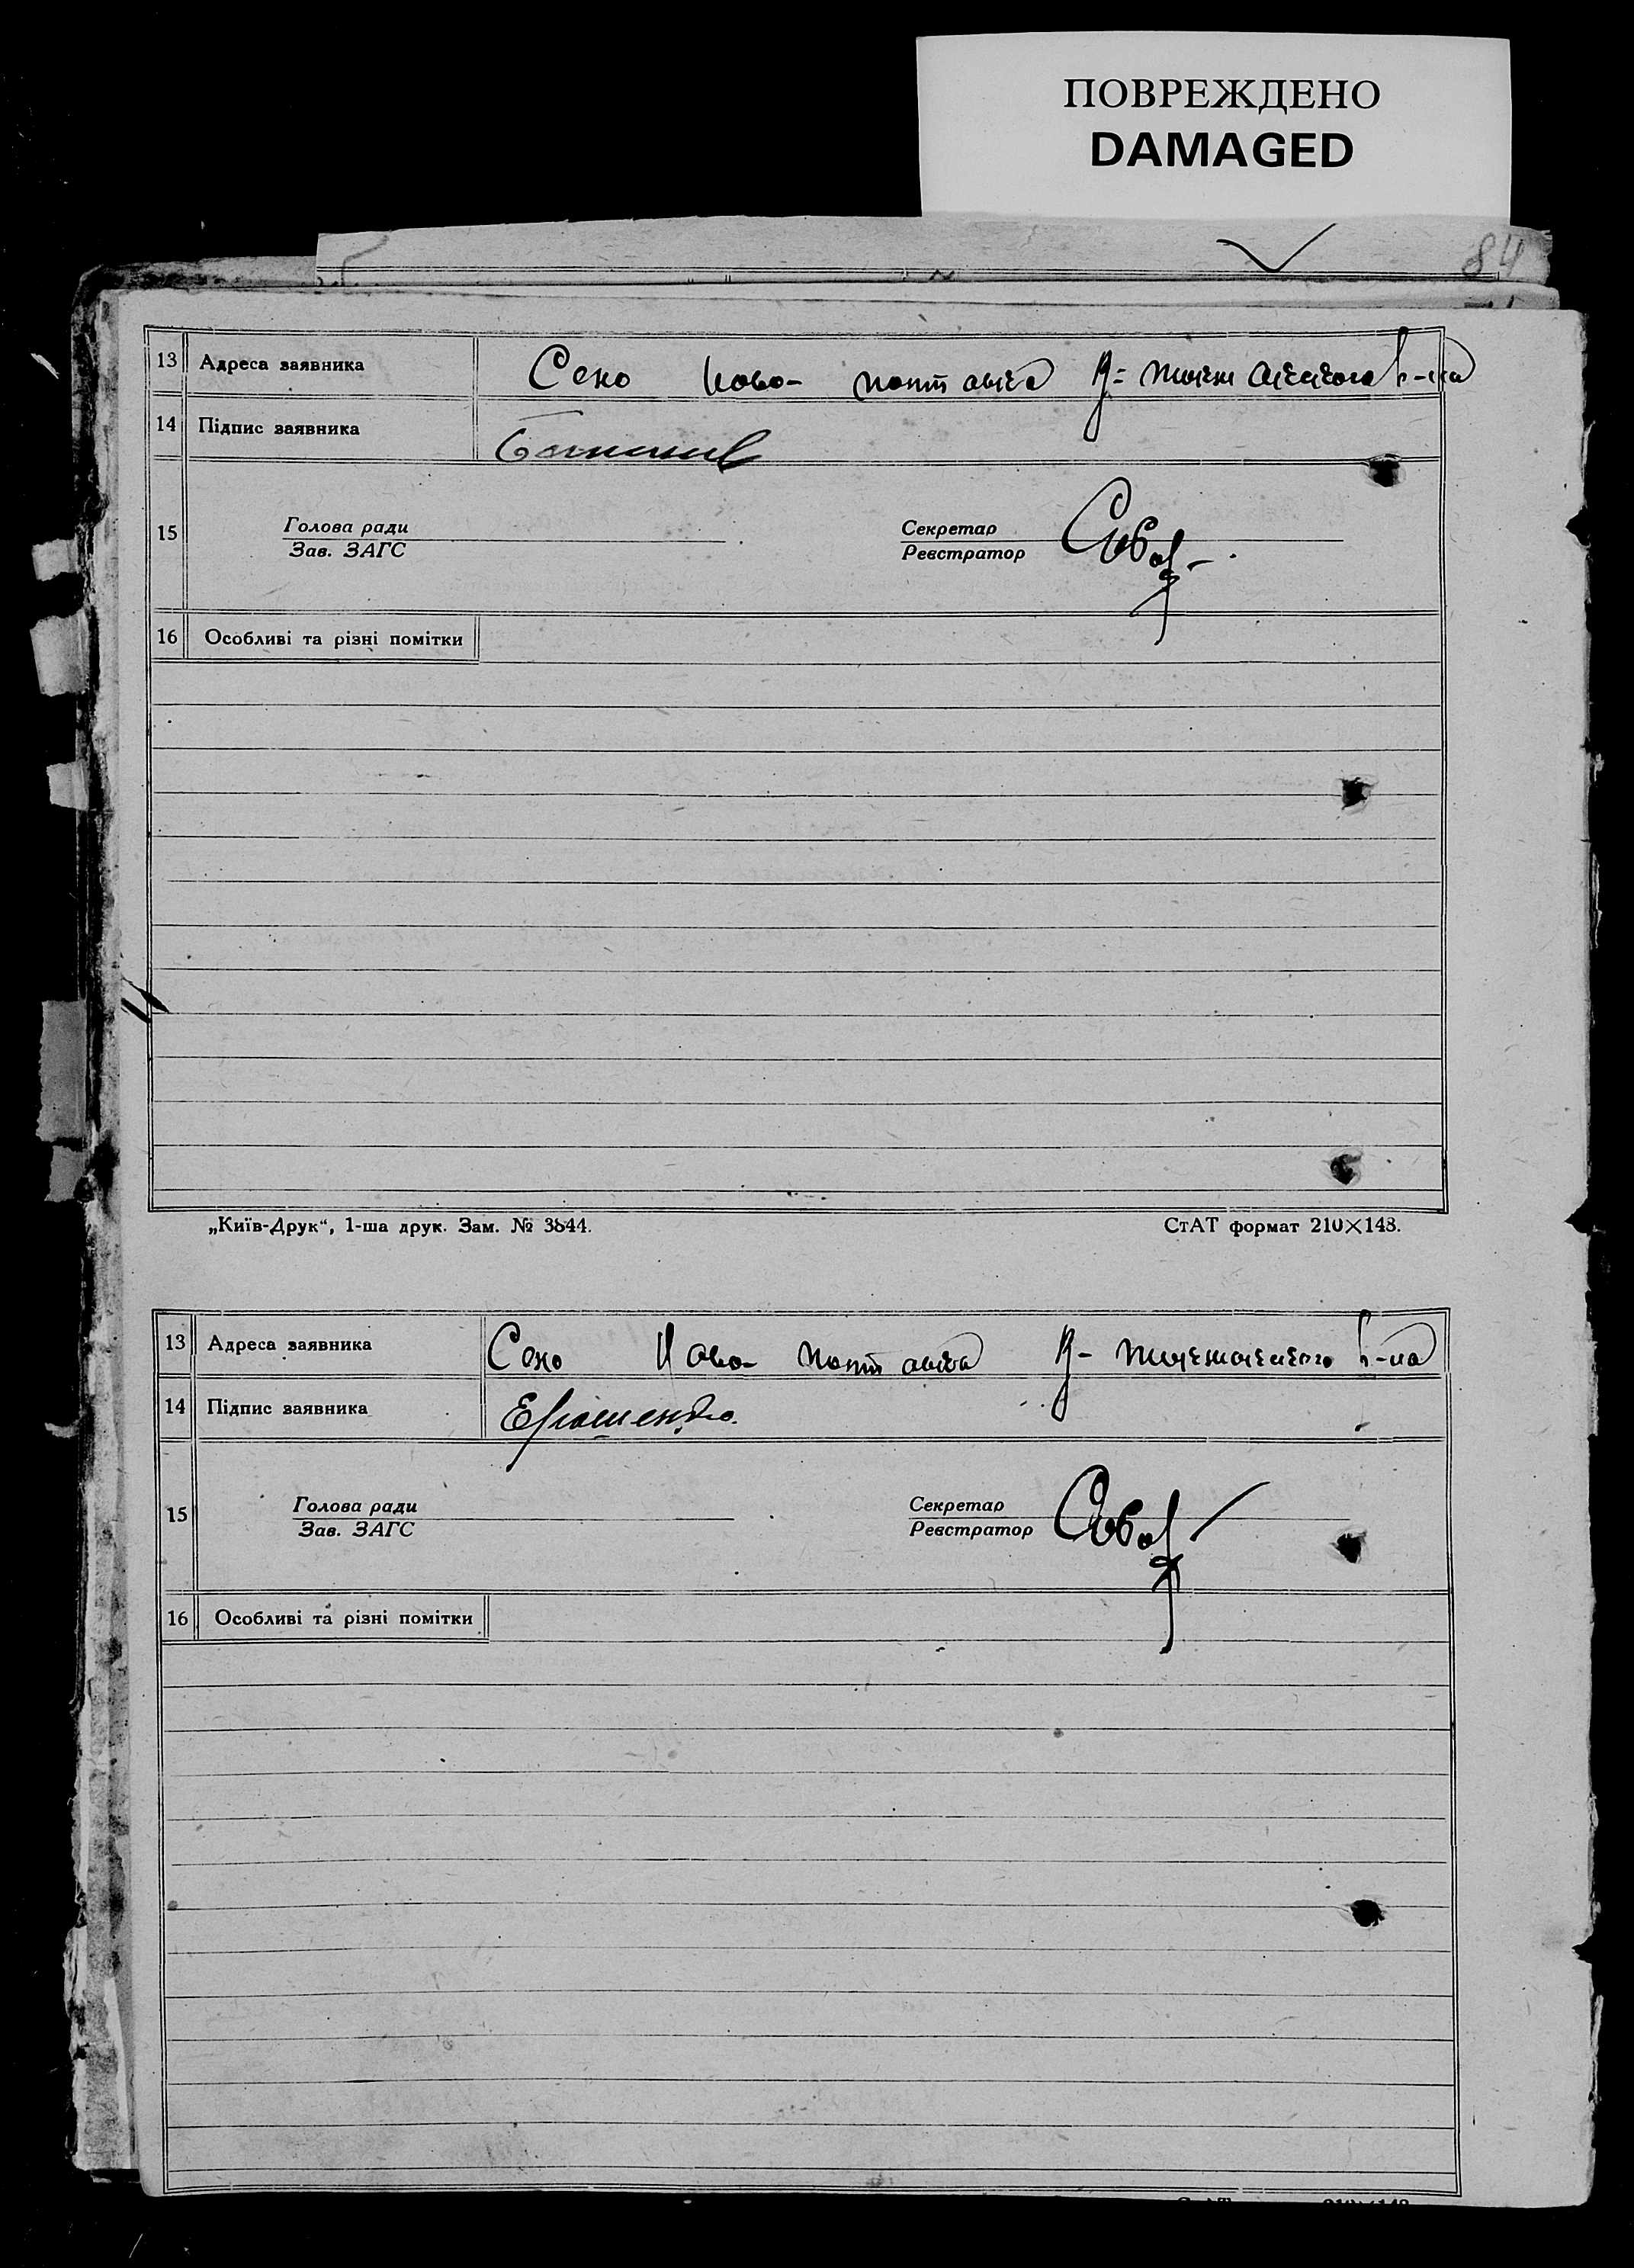 ПОВРЕЖДЕНО
DAMAGED
84
13 Адреса заявника Село Ново-полтавка В-
14 Підпис заявника
15 Голова ради Секретар
Зав. ЗАГС Реєстратор
16 Особливі та різні помітки
„Київ-Друк“, 1-ша друк. Зам. № 3844. СтАТ формат 210×148.
13 Адреса заявника Село Ново-полтавка В- р-на
14 Підпис заявника Ерошенко
15 Голова ради Секретар
Зав. ЗАГС Реєстратор
16 Особливі та різні помітки